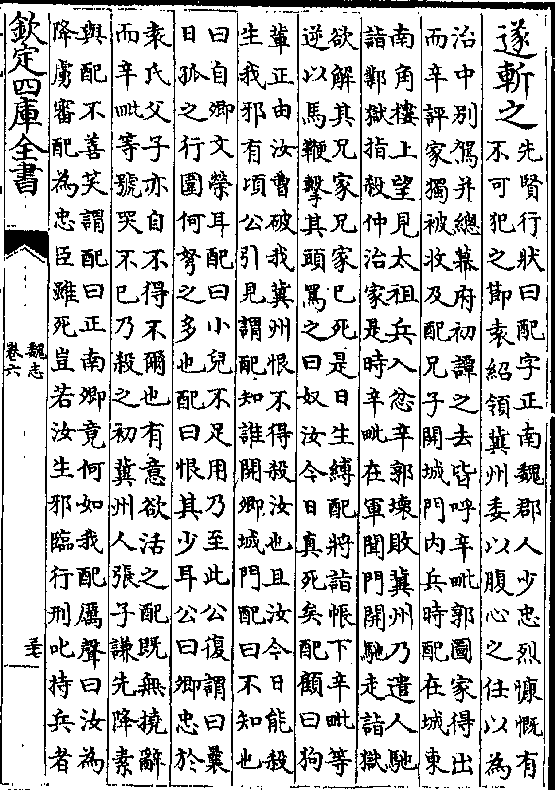 遂斬之
先賢行狀曰配字正南魏郡人少忠烈慷慨有
不可犯之節袁紹領冀州委以腹心之任以為
治中別駕并總幕府初譚之去皆呼辛毗郭圖家得出
而辛評家獨被收及配兄子開城門内兵時配在城東
南角樓上望見太祖兵入忿辛郭壞敗冀州乃遣人馳
詣鄴獄指殺仲治家是時辛毗在軍聞門開馳走詣獄
欲解其兄家兄家已死是日生縛配將詣帳下辛毗等
逆以馬鞭擊其頭罵之曰奴汝今日真死矣配顧曰狗
輩正由汝曹破我冀州恨不得殺汝也且汝今日能殺
生我邪有頃公引見謂配知誰開卿城門配曰不知也
曰自卿文榮耳配曰小兒不足用乃至此公復謂曰曩
日孤之行圍何弩之多也配曰恨其少耳公曰卿忠於
袁氏父子亦自不得不爾也有意欲活之配既無撓辭
而辛毗等號哭不已乃殺之初冀州人張子謙先降素
與配不善笑謂配曰正南卿竟何如我配厲聲曰汝為
降虜審配為忠臣雖死豈若汝生邪臨行刑叱持兵者
欽定四庫全書
魏志
卷六